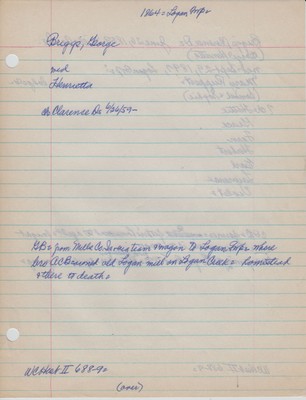 1864= Logan Twp=
Briggs, George
md
Henrietta
ch Clarence Da 6/26/59-
GB= from Mills Co driving team & wagon to Logan Twp= where
bro AC B owned old Logan mill on Logan Creek= homestead
& there to death=
WC Hist II 688-9=
(over)